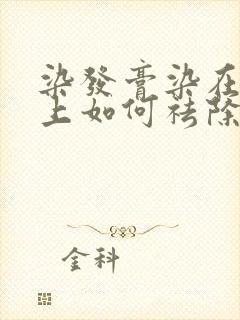 染發膏染在
上如何祛除
金科